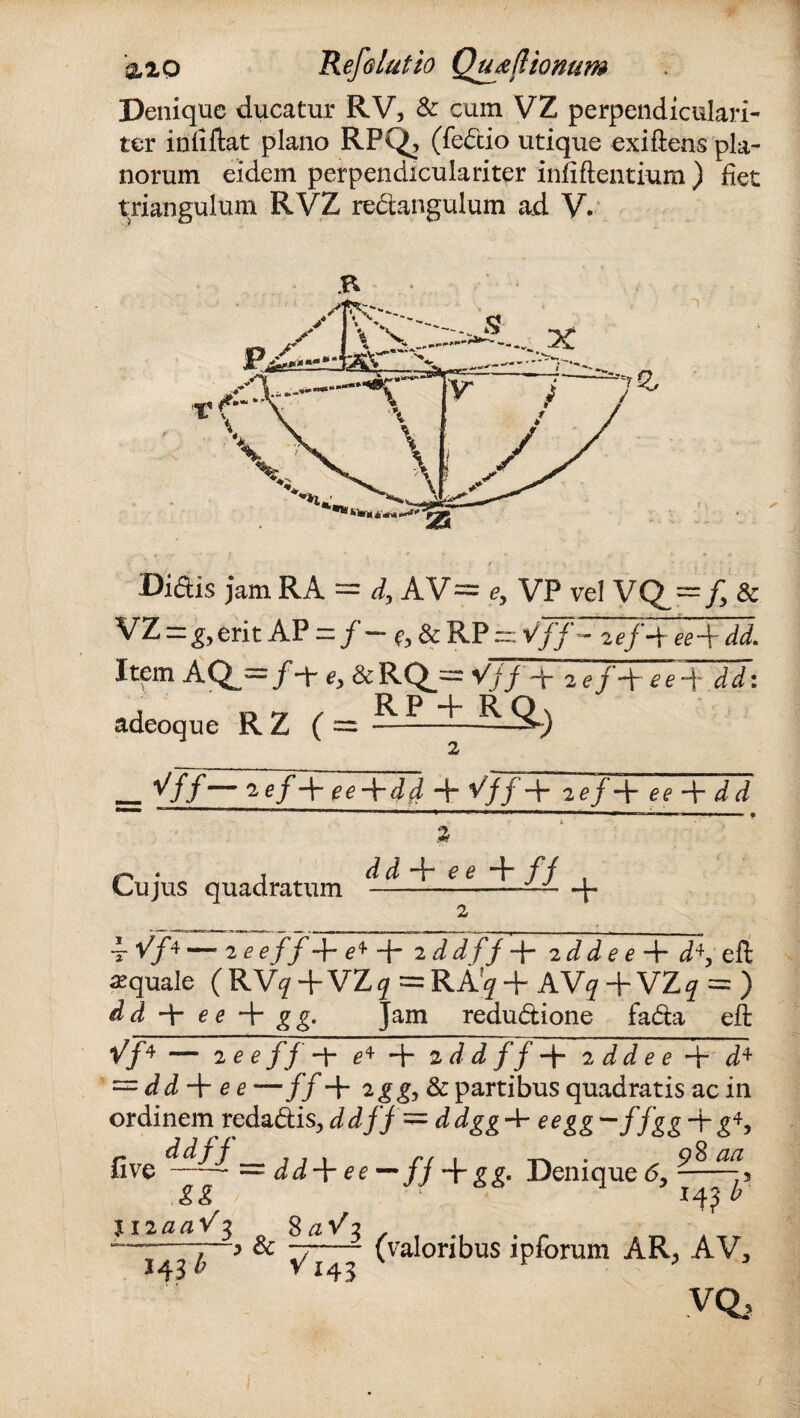 220 Reſolutio Quæſtionum
Denique ducatur RV, & cum VZ perpendiculari-
ter inſiſtat plano RPQ, (ſectio utique exiſtens pla-
norum eidem perpendiculariter inſiſtentium) fiet
triangulum RVZ rectangulum ad V.
R
S X
P
A V Q
T
Z
Dictis jam RA = d, AV = e, VP vel VQ = f, &
VZ = g, erit AP = f − e, & RP = √ff − 2ef + ee + dd.
Item AQ = f + e, & RQ = √ff + 2ef + ee + dd:
adeoque RZ (= (RP + RQ)/2)
= (√ff − 2ef + ee + dd + √ff + 2ef + ee + dd)/2,
Cujus quadratum (dd + ee + ff)/2 +
½√f⁴ − 2eeff + e⁴ + 2ddff + 2ddee + d⁴, eſt
æquale (RVq + VZq = RAq + AVq + VZq =)
dd + ee + gg. Jam reductione facta eſt
√f⁴ − 2eeff + e⁴ + 2ddff + 2ddee + d⁴
= dd + ee − ff + 2gg, & partibus quadratis ac in
ordinem redactis, ddff = ddgg + eegg − ffgg + g⁴,
ſive ddff/gg = dd + ee − ff + gg. Denique 6, 98aa/143b,
112aa√3/143b, & 8a√3/√143 (valoribus ipſorum AR, AV,
VQ,